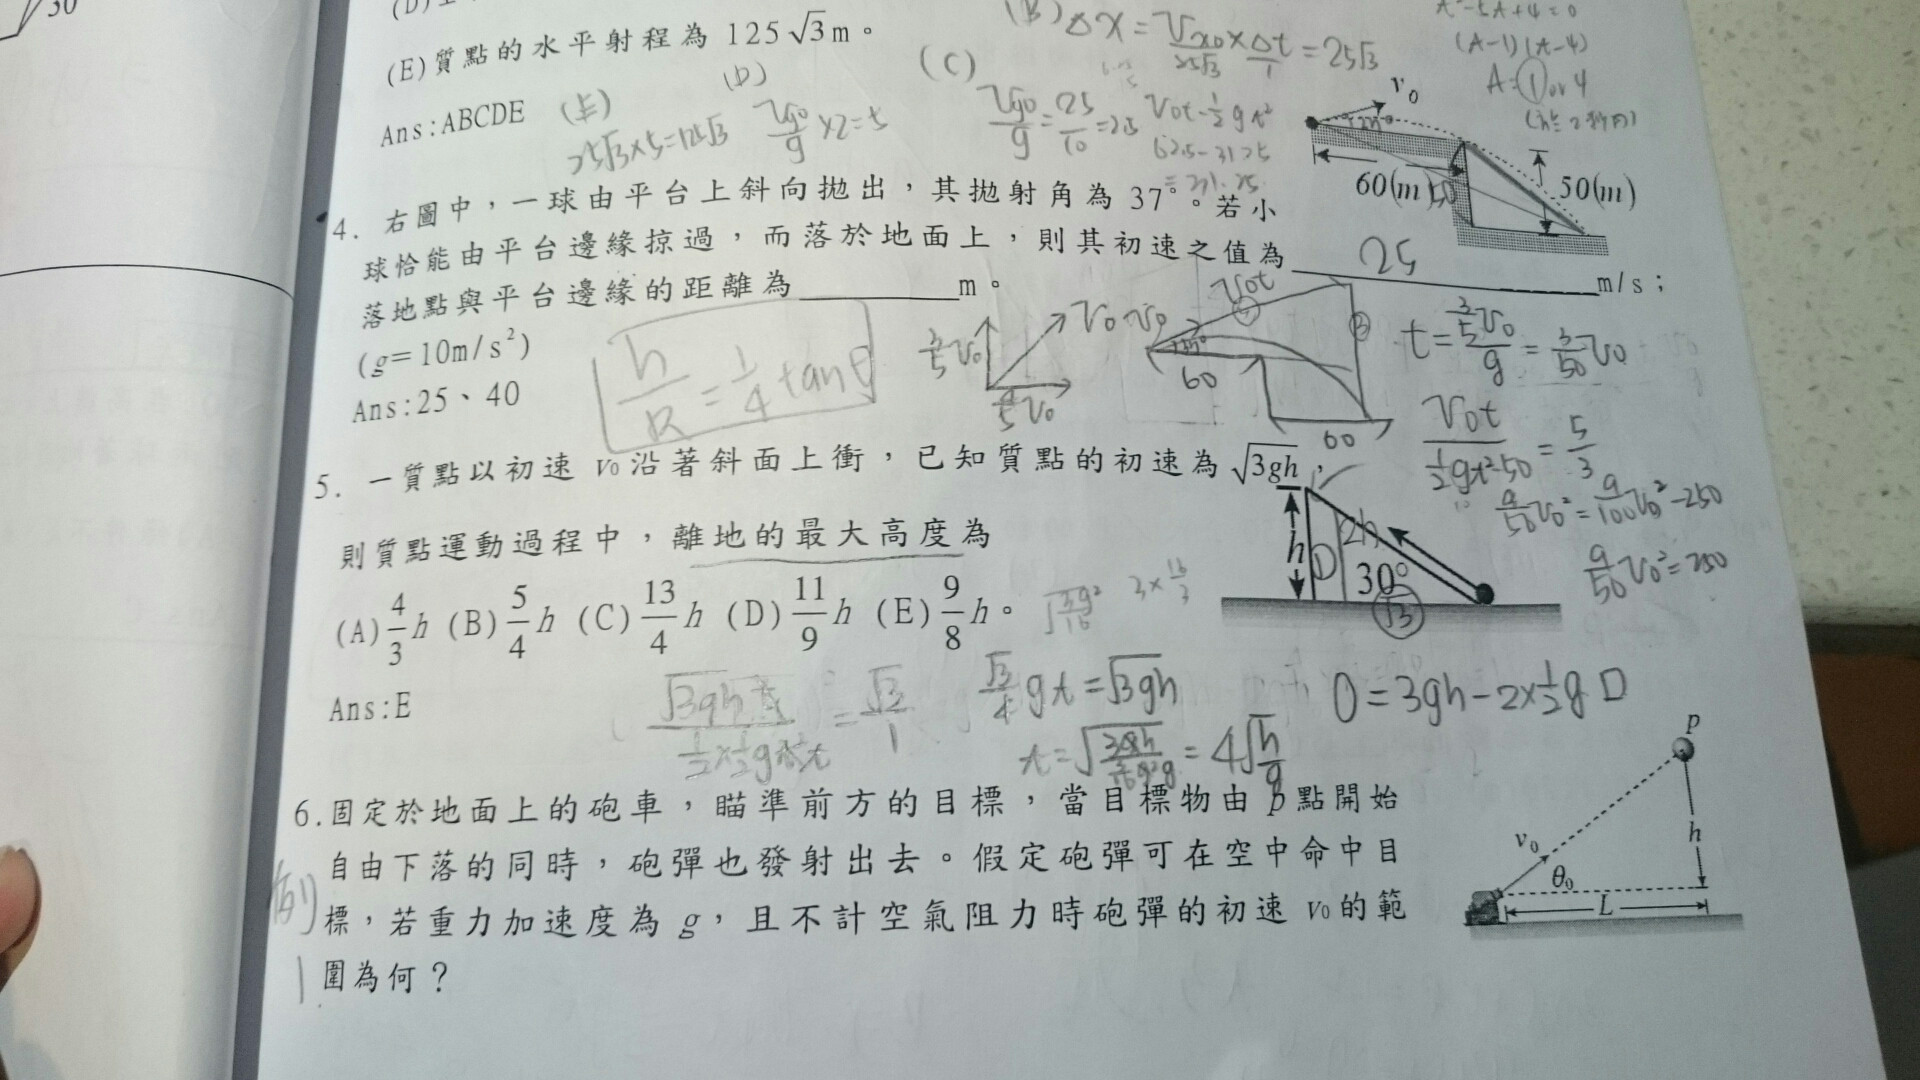 30
(E)質點的水平射程為 125√3m。
Ans:ABCDE
(E)
25√3×5=125√3
(D)
Vy0/g ×2=5
(C)
Vy0/g = 25/10 = 2.5
(B) Δx = Vx0 × Δt = 25√3
25√3 1
V0t-½gt²
62.5-31.25
=31.25
(A-1)(A-4)
A=1 or 4
4. 右圖中，一球由平台上斜向拋出，其拋射角為 37°。若小
球恰能由平台邊緣掠過，而落於地面上，則其初速之值為 25 m/s；
落地點與平台邊緣的距離為 m。
(g=10m/s²)
Ans:25、40
v₀
37°
60(m)
50
50(m)
h/R = 1/4 tanθ
3/5 V0
V0
4/5 V0
V0
V0t
37°
60
60
t = (3/5 V0)/g = 3/50 V0
V0t/(½gt²-50) = 5/3
9/50 V0² = 9/100 V0² -250
9/50 V0² = 250
5. 一質點以初速 v₀沿著斜面上衝，已知質點的初速為 √3gh，
則質點運動過程中，離地的最大高度為
(A) 4/3 h (B) 5/4 h (C) 13/4 h (D) 11/9 h (E) 9/8 h。
Ans:E
h
2h
30°
√3
√3/4 gt = √3gh
= 4√h/g
0 = 3gh - 2×½g D
6.固定於地面上的砲車，瞄準前方的目標，當目標物由 p點開始
自由下落的同時，砲彈也發射出去。假定砲彈可在空中命中目
標，若重力加速度為 g，且不計空氣阻力時砲彈的初速 v₀的範
圍為何？
例
1
p
v₀
θ₀
h
L